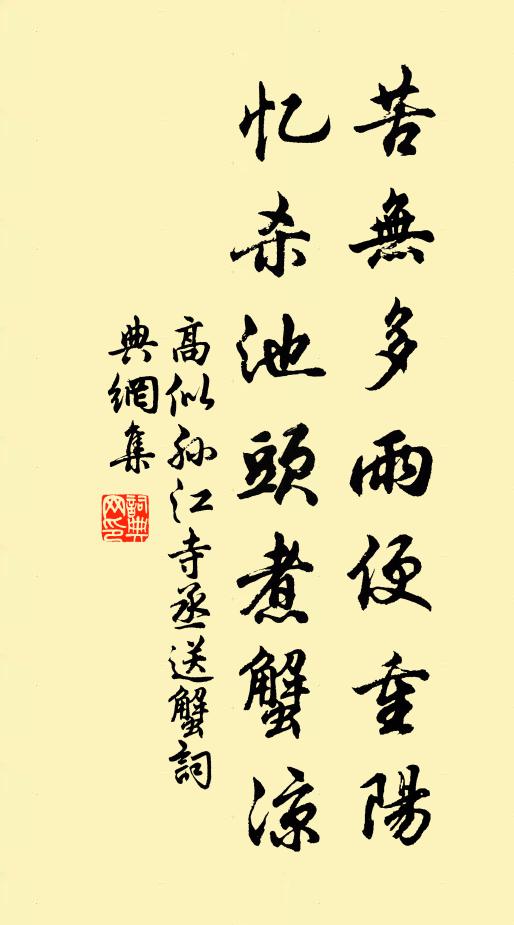 苦無多雨便重陽
忆杀池頭煮蟹凉
高似孙江寺丞送蟹詞
典網集
詞典网印